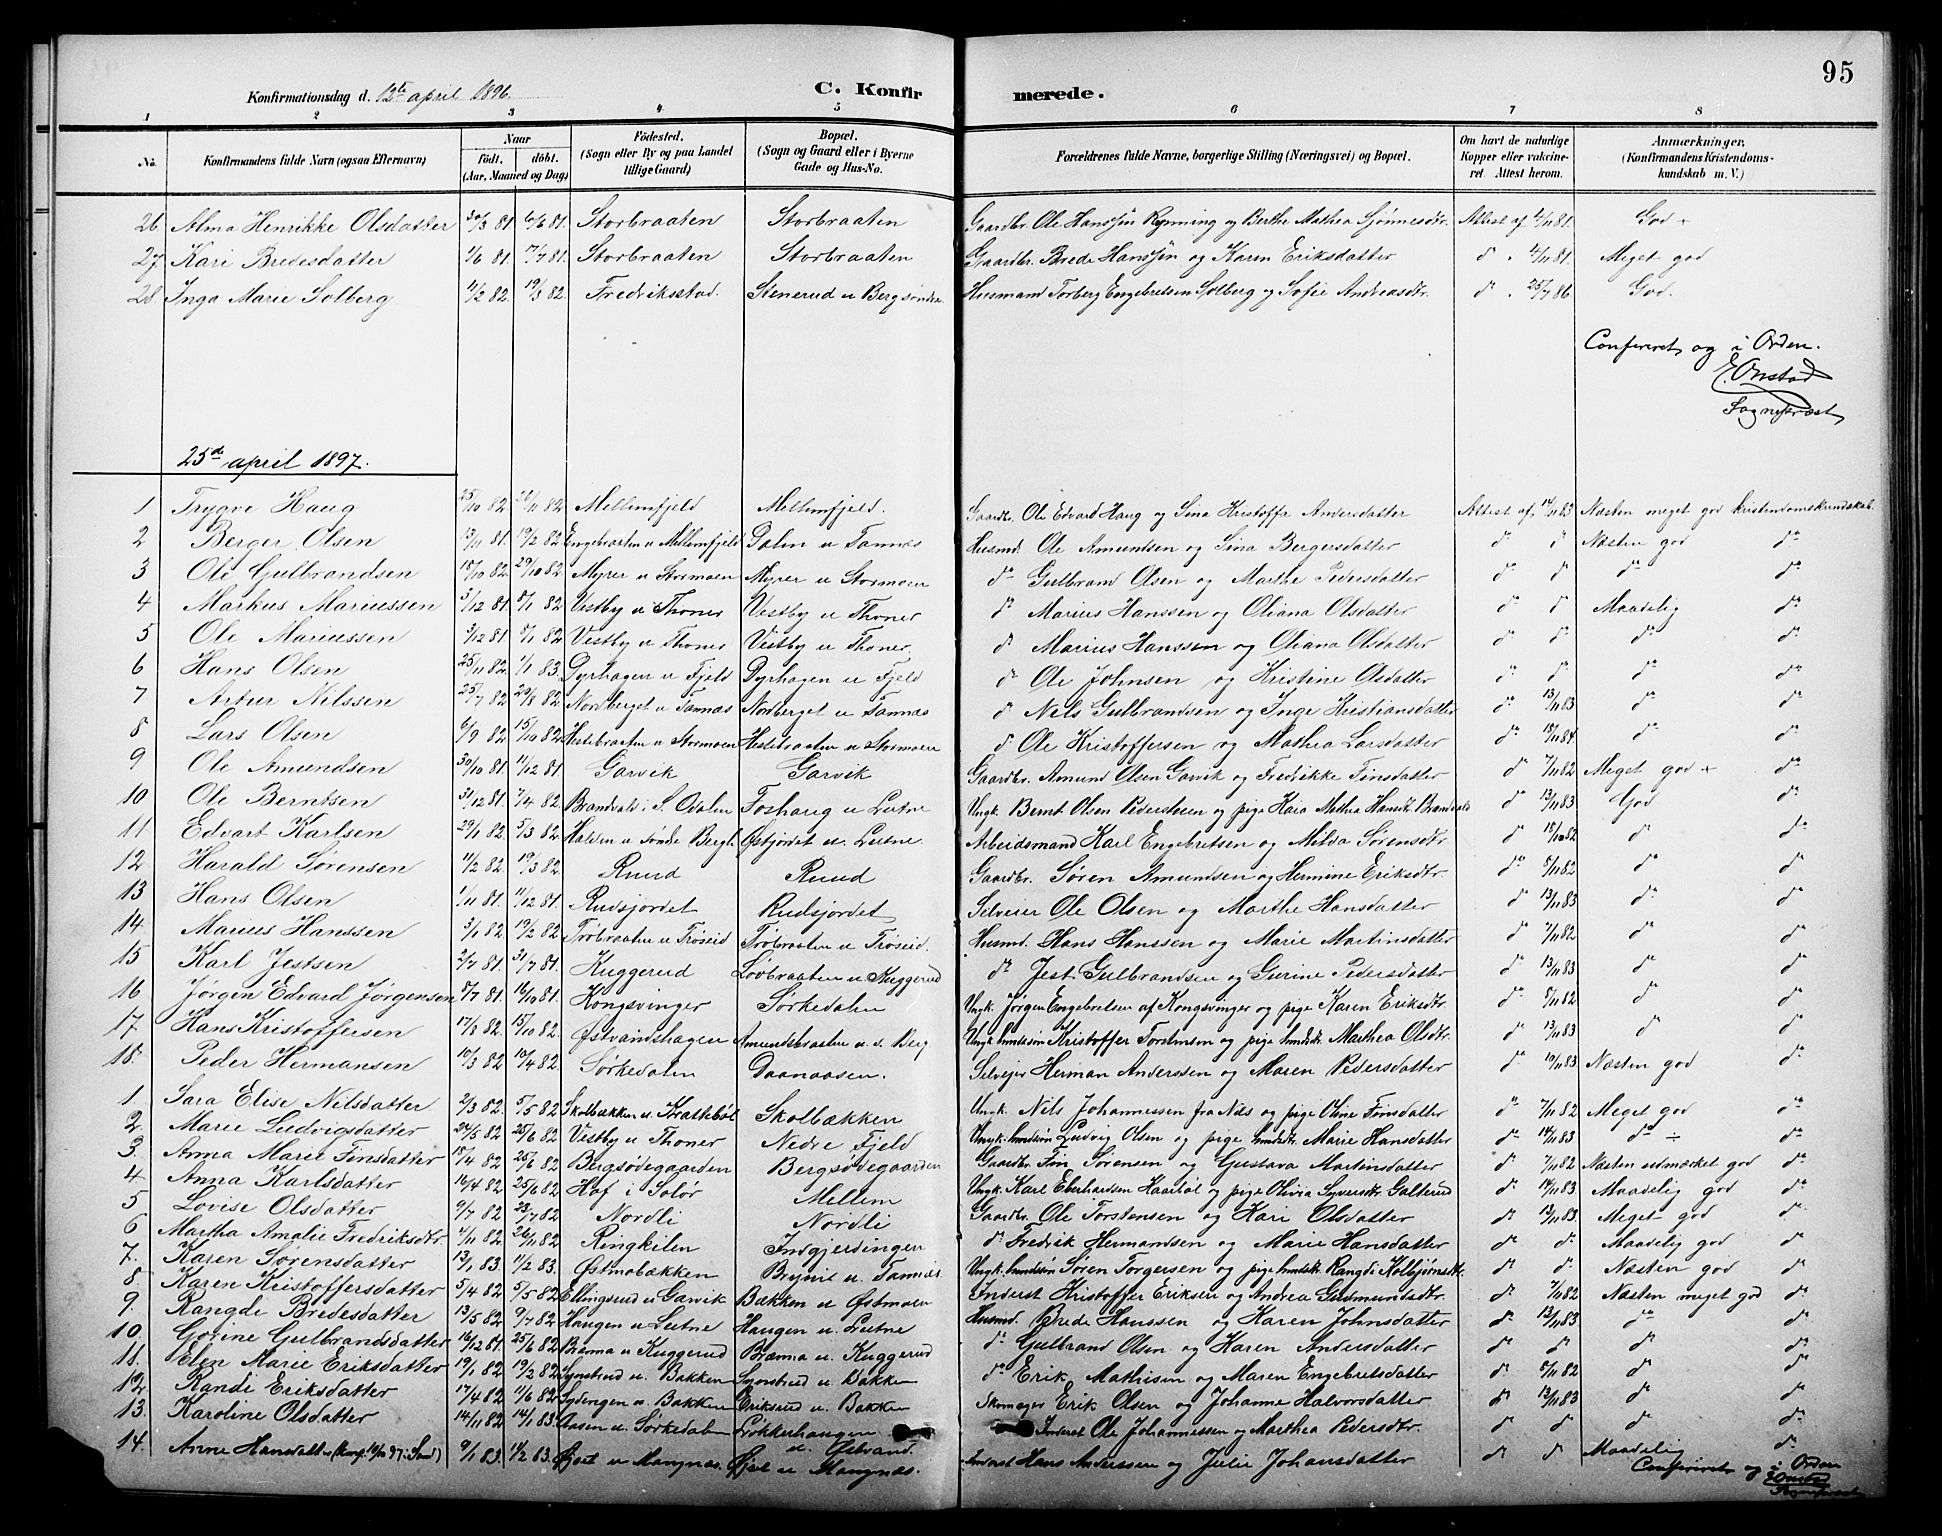 95
Konfirmationsdag d. 12te april 1896.
C. Konfirmerede.
1 2 3 4 5 6 7 8
No. Konfirmandens fulde Navn (ogsaa Efternavn) Naar födt. döbt. (Aar, Maaned og Dag) Födested. (Sogn eller By og paa Landet tillige Gaard) Bopæl. (Sogn og Gaard eller i Byerne Gade og Hus-No. Forældrenes fulde Navne, borgerlige Stilling (Næringsvei) og Bopæl. Om havt de naturlige Kopper eller vaccineret. Attest herom. Anmærkninger. (Konfirmandens Kristendomskundskab m. V.)
26 Alma Henrikke Olsdatter 30/3 81 6/6 81. Storbraaten Storbraaten Gaardbr. Ole Hanssøn Rynning og Berthe Mathea Sjønnesdtr. Attest af 4/11 81. God +
27 Kari Bredesdatter 1/6 81. 17/7 81. Storbraaten Storbraaten Gaardbr. Brede Hanssøn og Karen Eriksdatter d° 4/11 81. Meget god
28 Inga Marie Solberg 11/2 82 19/3 82. Fredriksstad. Stenerud u Berg søndre Husmand Torberg Engebretsen Solberg og Sofie Andreasdtr. d° 25/7 86 God.
Confereret og i Orden.
E. Onstad
Sogneprest
25de april 1897.
1 Trygve Haug 25/10 82 26/11 82 Mellemfjeld Mellemfjeld. Gaardbr. Ole Edvard Haug og Sina Kristoffa Andersdatter Attest af 14/11 83 Næsten meget god kristendomskundskab.
2 Berger Olsen 13/11 81. 19/2 82 Engebraaten u Mellemfjeld Dalen u Tannæs Husmd. Ole Amundsen og Sina Bergersdatter d° d° Næsten god d°
3 Ole Gulbrandsen 18/10 82. 29/10 82. Myrer u Stormoen Myrer u Stormoen d° Gulbrand Olsen og Marthe Pedersdatter d° d° d° d°
4 Markus Mariussen 3/12 81. 8/1 82 Vestby u Thoner Vestby u Thoner d° Marius Hanssen og Oliana Olsdatter d° d° Maadelig d°
5 Ole Mariussen 3/12 81. 8/1 82 Vestby u Thoner Vestby u Thoner. d° Marius Hanssen og Oliana Olsdatter d° d° d° d°
6 Hans Olsen 25/11 82. 1/1 83. Dyrhagen u Fjeld Dyrhagen u Fjeld d° Ole Johnsen og Kristine Olsdatter d° d° d° d°
7 Artur Nilssen 25/7 82 20/8 82 Nordberget u Tannæs Nordberget u Tannæs d° Nils Gulbrandsen og Inge Kristiansdatter d° 13/11 83 d° d°
8 Lars Olsen 6/9 82 15/10 82 Hestebraaten u Stormoen Hestebraaten u Stormoen d° Ole Kristoffersen og Mathea Larsdatter d° 18/11 84. d° d°
9 Ole Amundsen 30/10 81. 11/12 81. Garvik Garvik Gaardbr. Amund Olsen Garvik og Fredrikke Finsdatter d° 7/11 82 Meget god + d°
10 Ole Berntsen 31/12 81. 7/4 82 Brandval i S. Odalen Foshaug u Lutne Ungk. Bernt Olsen Pedershuen og pige Kara Mathea Hansdt. Brandvol d° 13/11 83 God d°
11 Edvart Karlsen 29/1 82. 5/3 82. Halden u Søndre Bergt. Østjordet u. Lutne Arbeidsmand Karl Engebretsen og Milva Sørensdtr d° 18/10 82 d° d°
12 Harald Sørensen 11/2 82. 19/3 82. Ruud Ruud Gaardbr. Søren Amundsen og Hermine Eriksdtr. d° 8/11 82 d° d°
13 Hans Olsen 1/11 81. 11/12 81. Rudsjordet Rudsjordet Selveier Ole Olsen og Marthe Hansdatter d° 13/11 83 d° d°
14 Marius Hanssen 3/1 82 19/2 82 Trøbraaten u Trøseid Trøbraaten u Trøseid. Husmd. Hans Hanssen og Marie Martinsdatter d° 7/11 82 d° d°
15 Karl Jestsen 2/7 81. 31/7 81. Kuggerud Løvbraaten u Kuggerud d° Jest Gulbrandsen og Gurine Pedersdatter d° 13/11 83 d° d°
16 Jørgen Edvard Jørgensen 8/7 81. 16/10 81. Kongsvinger Sørkedalen Ungk. Jørgen Engebretsen af Kongsvinger og pige Karen Eriksdtr. d° 8/11 82 d° d°
17 Hans Kristoffersen 17/8 82. 15/10 82. Østvandshagen Amundsbraaten u s. Berg Ungk. huusløn Kristoffer Torstensen og pige huusdt. Mathea Olsdtr. d° 13/11 83. d° d°
18. Peder Hermansen 10/3 82 10/4 82. Sørkedalen Daanaasen. Selveier Herman Anderssen og Maren Pedersdatter d° 10/11 83 Næsten god d°
1 Sara Elise Nilsdatter 2/3 82. 5/5 82 Skolbækken u. Krattebøl Skolbækken Ungk. Nils Johannessen fra Næs og pige Oline Finsdatter d° 7/11 82 Meget god d°
2. Marie Ludvigsdatter 24/5 82 25/6 82 Vestby u Thoner Nedre Fjeld Ungk. huusløn Ludvig Olsen og pige huusdtr. Marie Hansdatter d° 14/11 83 d° ÷ d°
3. Anna Marie Finsdatter 18/4 82 25/6 82 Bergsødegaarden Bergsødegaarden Gaardbr. Fin Sørensen og Gustava Martinsdatter d° 7/11 82 Næsten udmærket god d°
4 Anna Karlsdatter 16/4 82 25/6 82 Hof i Solør Mellem Ungk. Karl Eberhardsen Haarbøl og pige Olivia Syversdtr. Galterud d° 14/11 83. Maadelig god d°
5 Lovise Olsdatter 9/7 82 23/7 82 Nordli Nordli Gaardbr. Ole Torstensen og Kari Olsdatter d° 13/11 83. Meget god d°
6 Martha Amalie Fredriksdtr. 4/11 82. 26/11 82 Ringkilen Indgjerdingen d° Fredrik Hermandsen og Marie Hansdatter d° d° Maadelig god d°
7. Karen Sørensdatter 13/1 83 11/2 83. Østmobækken Brynit u. Tannæs Ungk. huusløn Søren Torgersen og pige huusdt. Rangdi Kolbjønsdtr. d° d° Næsten god d°
8. Karen Kristoffersdatter 5/4 82 5/5 82 Ellingsrud u Garvik Bakken u Østmoen Inderst Kristoffer Eriksen og Andrea Gudmundsdtr d° 7/11 82 Næsten meget god d°
9. Rangdi Bredesdatter 13/5 82 9/7 82 Haugen u Lutne Haugen u. Lutne Husmd. Brede Hanssen og Karen Johnsdatter d° 13/11 83 d° d°
10. Gorine Gulbrandsdatter 16/12 81. 25/6 82 Brænna u Kuggerud Brænna u. Kuggerud d° Gulbrand Olsen og Karen Andersdatter d° d° d° d°
11. Elen Marie Eriksdatter 19/1 82 19/2 82 Synstrud u. Bakken Synstrud u. Bakken d° Erik Mathisen og Maren Engebretsdatter d° 8/11 82 d° d°
12. Randi Eriksdatter 17/4 82 11/6 82 Sydengen u. Bakken Eriksrud u. Bakken Skomager Erik Olsen og Johanne Halvorsdatter d° 13/11 83 d° d°
13. Karoline Olsdatter 14/11 82 14/1 83. Aasen u Sørkedalen Løkkerhaugen u. Østvand. Inderst Ole Johannessen og Marthea Pedersdtr. d° d° d° d°
14. Anne Hansdatter (Konf. 10/10 97 i Sand) 9/1 83. 11/2 83. Øjset u Mangnæs. Øjset u Mangnæs. Inderst Hans Anderssen og Julie Johansdatter d° d° Maadelig d°
Confereret og i Orden
E. Onstad
Sogneprest